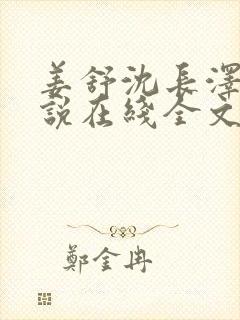 姜舒沈長澤
說在綫全文
鄭金冉